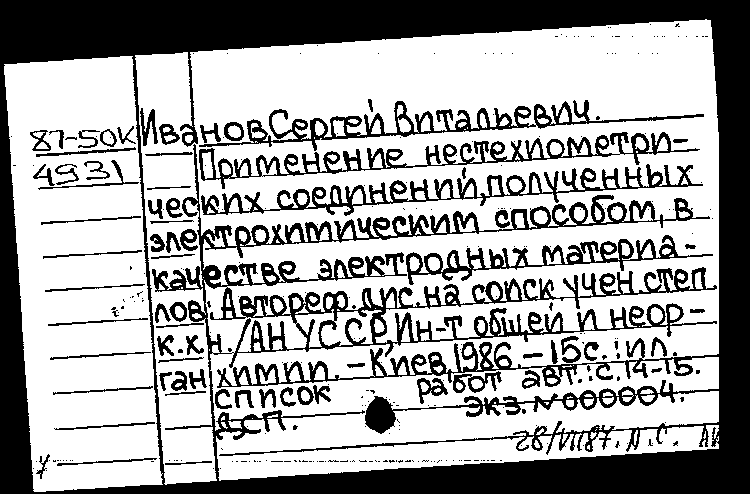 87-50К Иванов, Сергей Витальевич.
4931 Применение нестехиометри-
ческих соединений, полученных
электрохимическим способом, в
качестве электродных материа-
лов: Автореф. дис. на соиск. учен. степ.
к.х.н. / АН УССР, Ин-т общей и неор-
ган химии. - Киев, 1986. - 15с.: ил.
список работ авт.: с. 14-15.
ДСП. экз. N 000004.
28/VII87. Л.С.